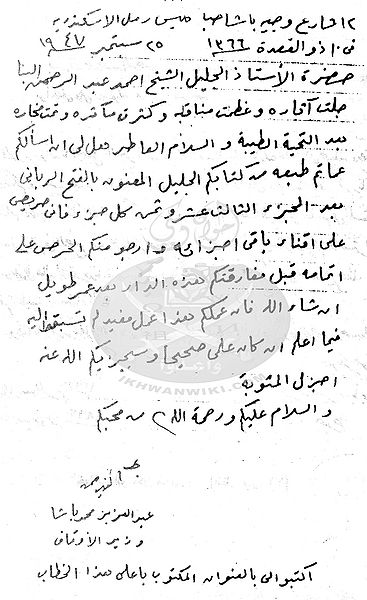 ١٢ شارع وجيه باشا صبا ميس رمل الاسكندرية
فى ١٠ ذو القعدة ١٣٦٦ ٢٥ سبتمبر ١٩٤٧
حضرة الأستاذ الجليل الشيخ احمد عبد الرحمن البنا
جلت آثاره وعظمت مناقبه وكثرت مآثره وتمت مفاخره
بعد التحية الطيبة والسلام العاطر فهل لى ان أسألكم
عما تم طبعه من كتابكم الجليل المعنون بالفتح الربانى
بعد الجزء الثالث عشر وثمن كل جزء فانى حريص
على اقتناء باقى اجزائه وارجو منكم الحرص على
اتمامه قبل مفارقتكم هذه الدار بعد عمر طويل
ان شاء الله فان عملكم هذا عمل مفيد لم تسبقوا اليه
فيما اعلم ان كان على صحيحا وسيجزيكم الله عنه
اجزل المثوبة
والسلام عليكم ورحمة الله من محبكم
عبد العزيز محمد باشا
وزير الأوقاف
اكتبوا لى بالعنوان المكتوب باعلى هذا الخطاب
IKHWANWIKI.COM